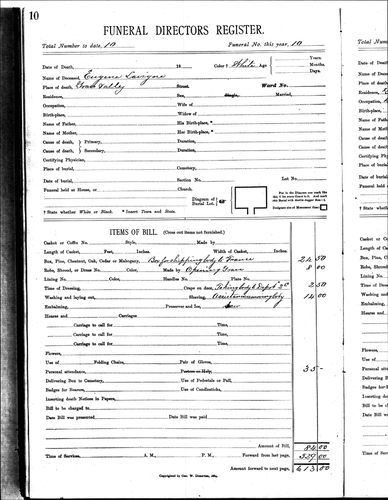 10
FUNERAL DIRECTORS REGISTER.
Total Number to date, 10 Funeral No. this year, 10
Date of Death, 18 Color † White Age Years. Months. Days.
Name of Deceased, Eugene Lavigne
Place of death, Grass Valley Street. Ward No.
Residence, Sex Single, Married,
Occupation, Wife of
Birth-place, Widow of
Name of Father, His Birth-place, *
Name of Mother, Her Birth-place, *
Cause of death, Primary, Duration,
Cause of death, Secondary, Duration,
Certifying Physician,
Place of burial,
Date of burial, Section No. Lot No.
Funeral held at House, or Church.
Diagram of Burial Lot.
† State whether White or Black. * Insert Town and State.
ITEMS OF BILL. (Cross out items not furnished.)
Casket or Coffin No. Style, Made by
Length of Casket, Feet, Inches. Width of Casket, Inches.
Box, Pine, Chestnut, Oak, Cedar or Mahogany, Box for shipping body to France 24 50
Robe, Shroud, or Dress No. Color, Made by Opening Grave 8 00
Lining No. Color, Handles No. Plate No.
Time of Dressing, Crape on door, Taking body to Depot 2 50
Washing and laying out, Shaving, 14 00
Embalming, Preserver and Ice,
Hearse and Carriages
Carriage to call for Time,
Carriage to call for Time,
Carriage to call for Time,
Carriage to call for Time,
Flowers,
Use of Folding Chairs, Pair of Gloves,
Personal attendance, Porters or Help, 35 -
Delivering Box in Cemetery, Use of Pedestals or Pall,
Badges for Bearers, Use of Candlesticks,
Inserting death Notices in Papers,
Bill to be charged to
Date Bill was presented Date Bill was paid
Amount of Bill, 84 00
Time of Services, A. M., P. M. Forward from last page, 529 00
Amount forward to next page, 613 00
Copyrighted by Geo. W. Donavan, Jr.